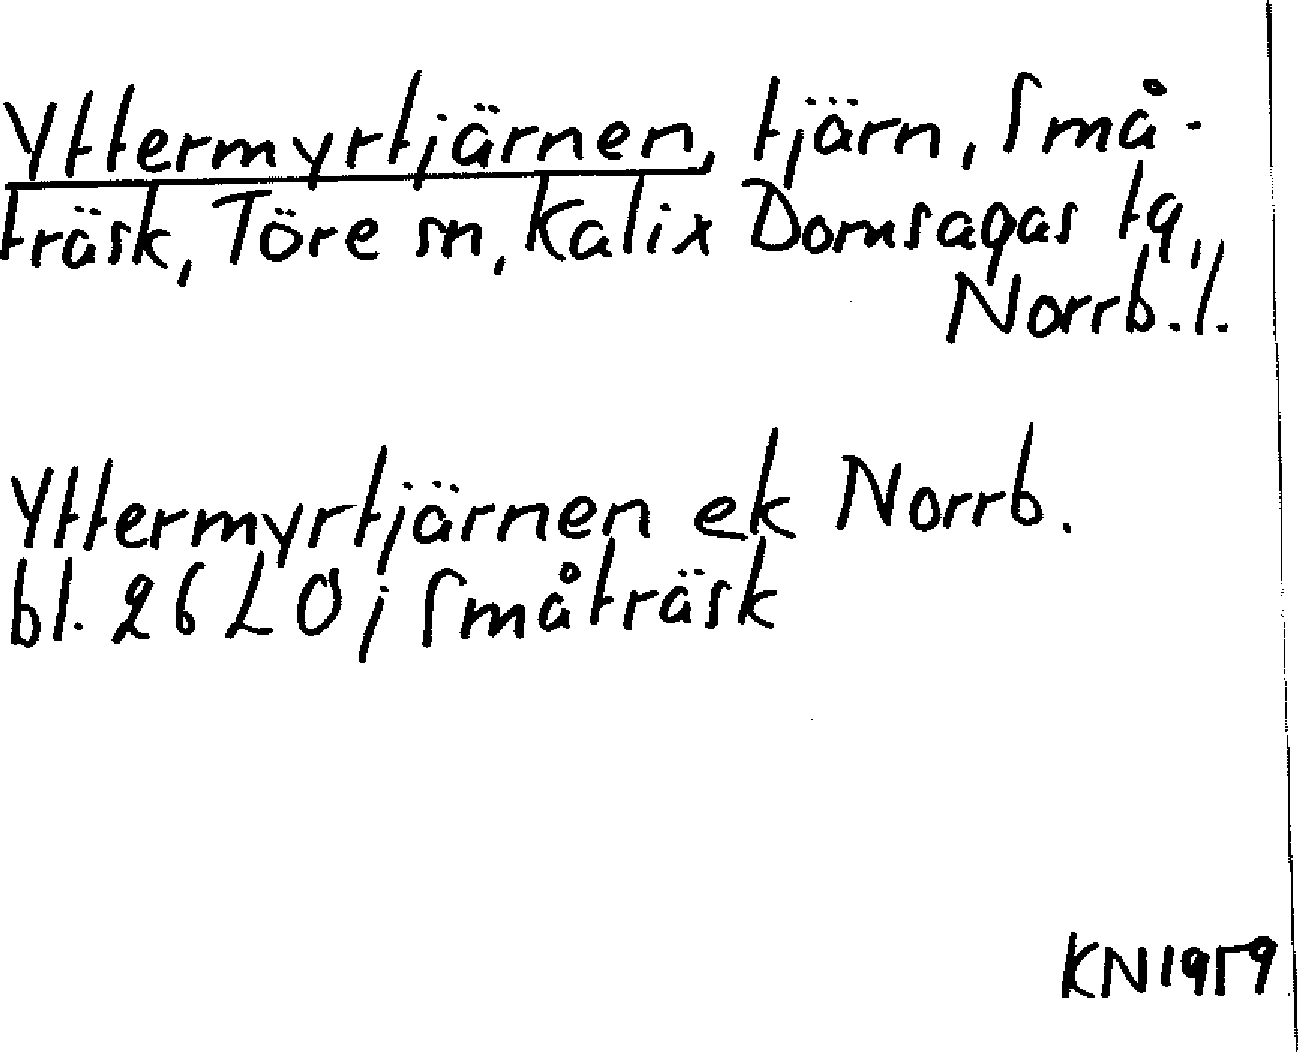 Yttermyrtjärnen, tjärn, Små-
träsk, Töre sn, Kalix Domsagas tg,
Norrb. l.
Yttermyrtjärnen ek Norrb.
bl. 26 L 0; Småträsk
KN 1959